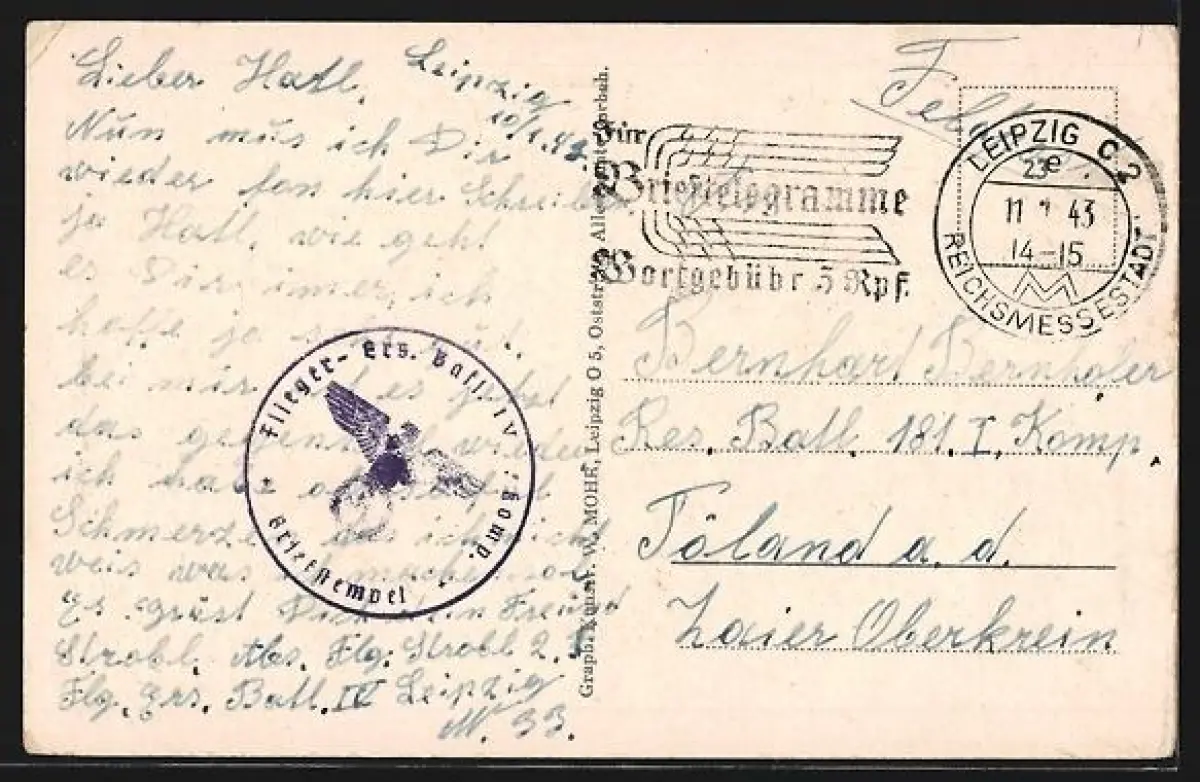 Lieber Hatl,
Leipzig
10/1.43
Nun mus ich Dir
wieder fon hier Schreiben
ja Hatl, wie geht
es Dir imer, ich
hoffe ja
bei mir ist es jetzt
das
ich habe
Schmerzen das ich nicht
weis was ich machen soll
Es grüst Dich dein Freund
Strobl. Abs. Flg. Strobl 2.
Flg. Ers. Batl. IV Leipzig
M. 33.
Flieger-Ers. Batl. IV
Komp.
Briefstempel
Graph. Kunstanst. W. MOHR, Leipzig O 5, Oststraße
Für
Brieftelegramme
Wortgebühr 5 Rpf.
LEIPZIG C 2
23e
11 1 43
14-15
REICHSMESSESTADT
Bernhart Bernholer
Res. Batl. 181. I. Komp.
Töland a. d.
Zaier Oberkrein